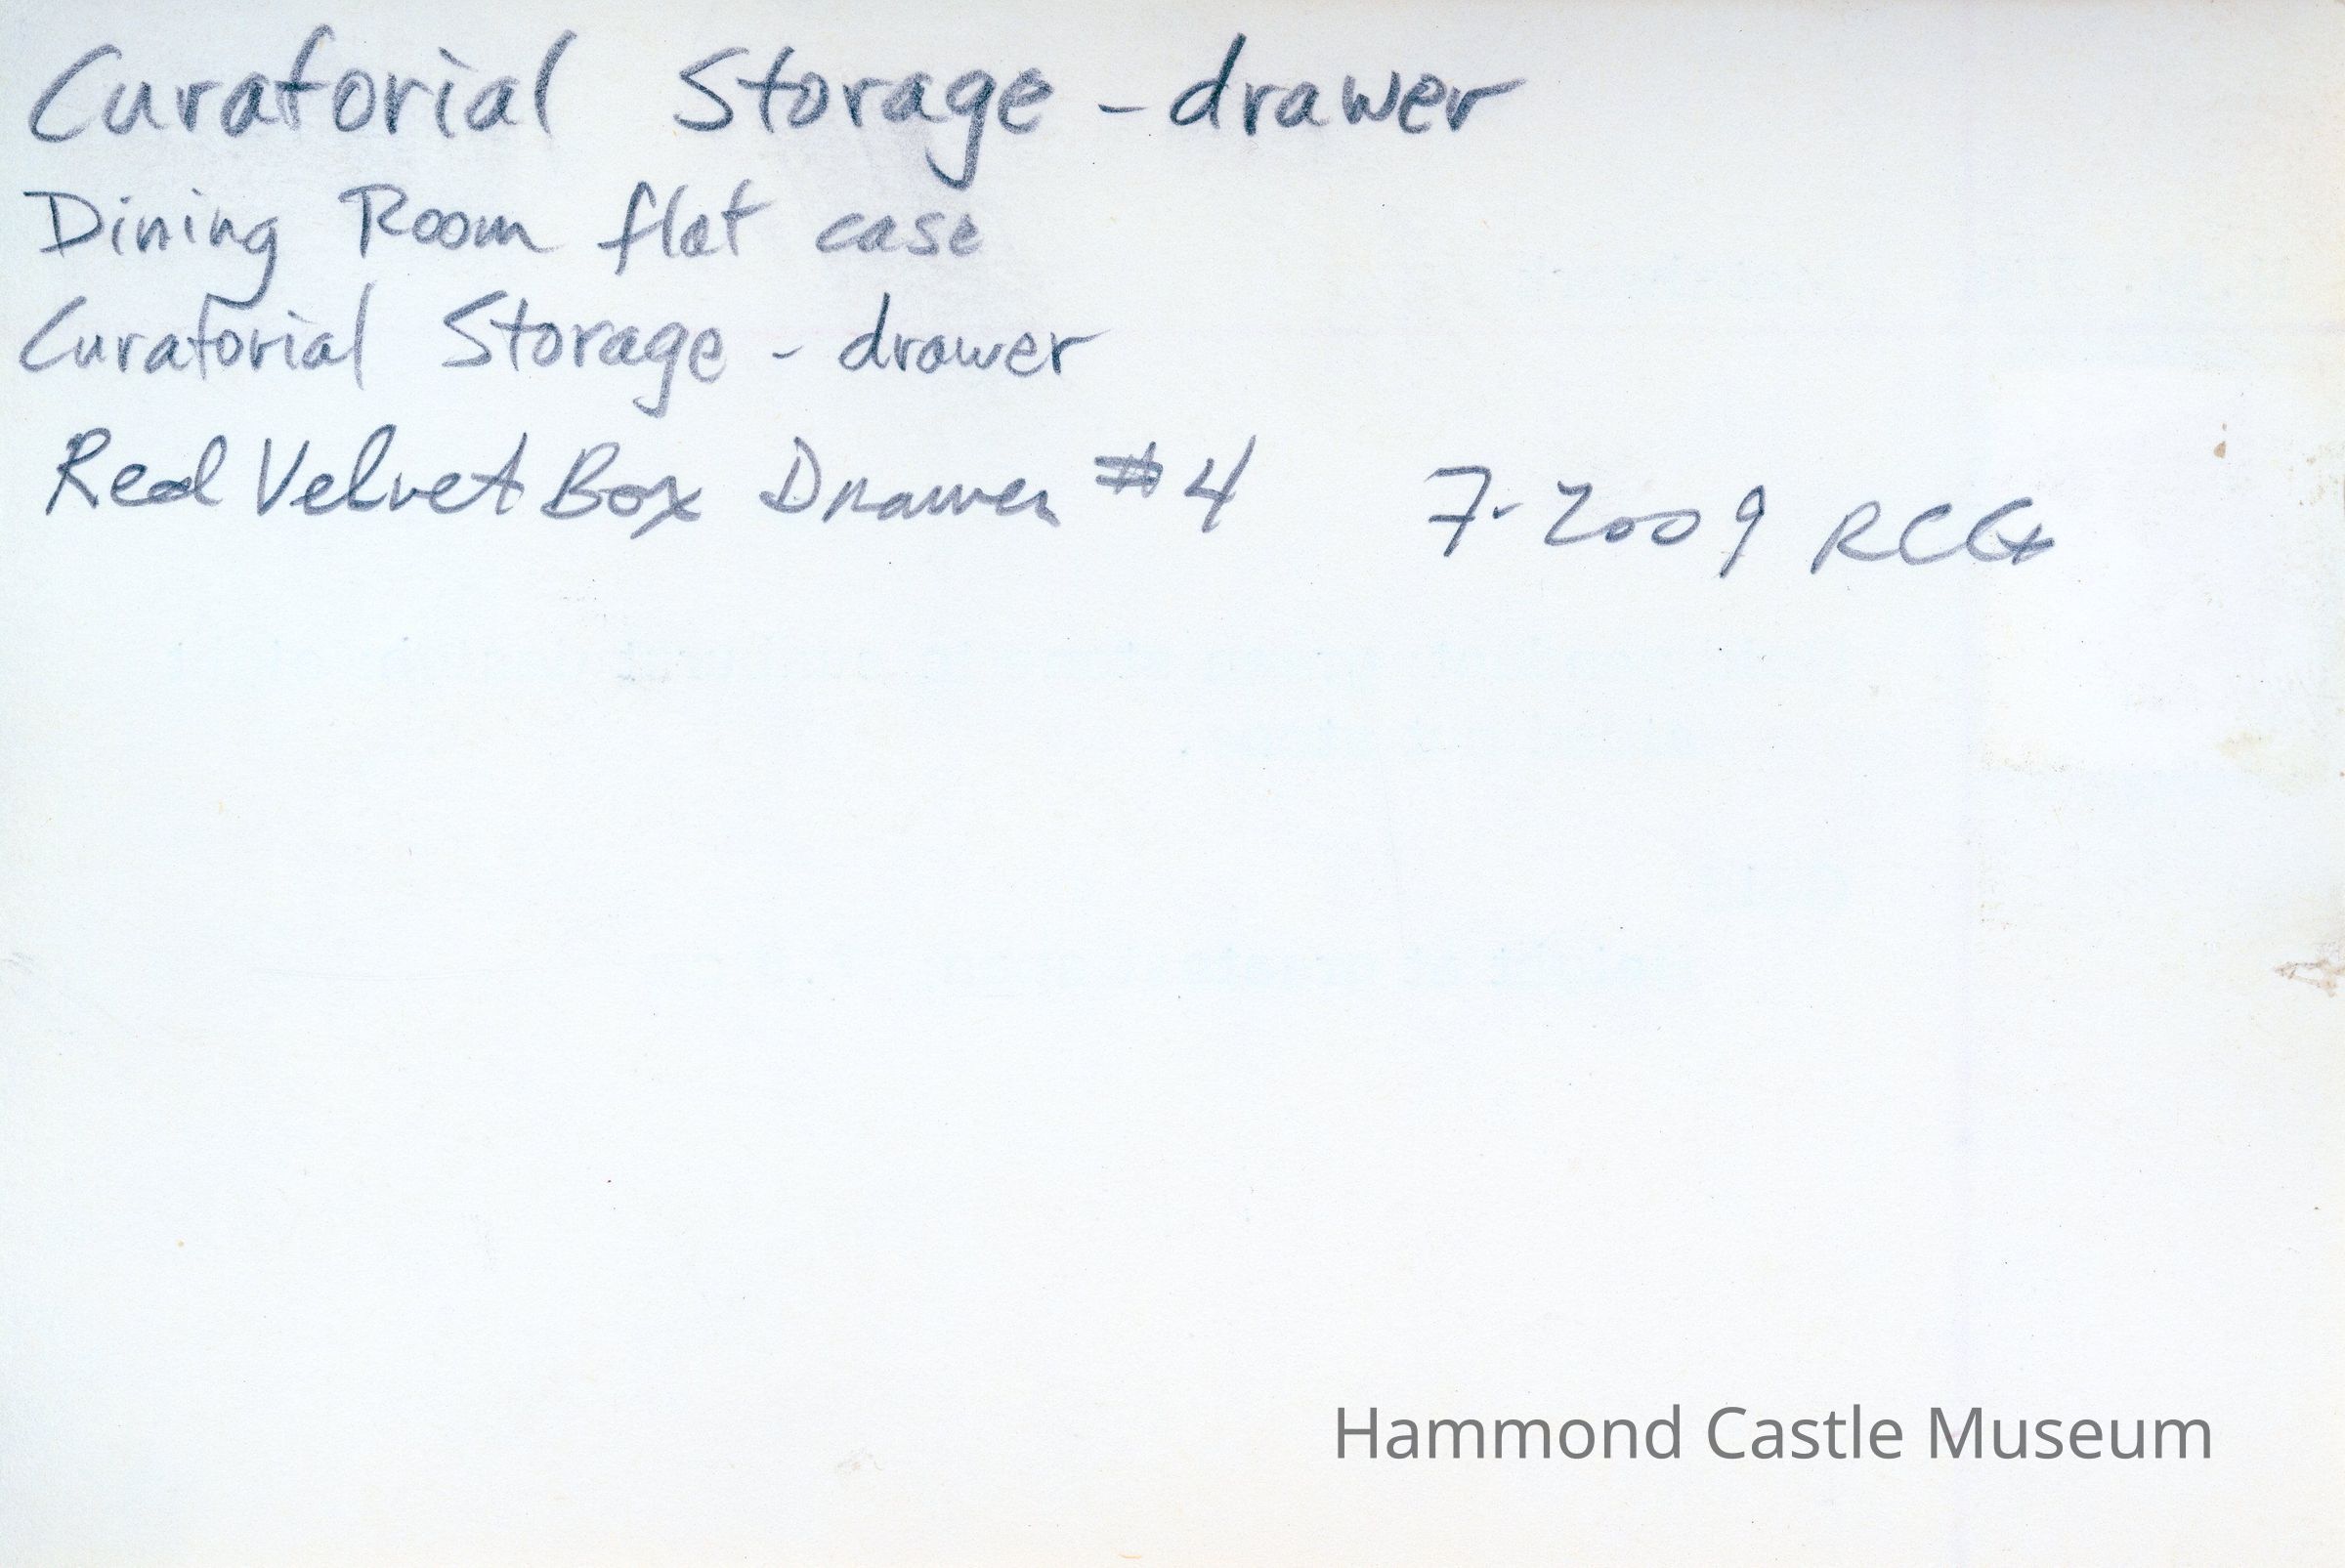 Curatorial Storage - drawer
Dining Room flat case
Curatorial Storage - drawer
Red Velvet Box Drawer #4 7-2009 RCG
Hammond Castle Museum